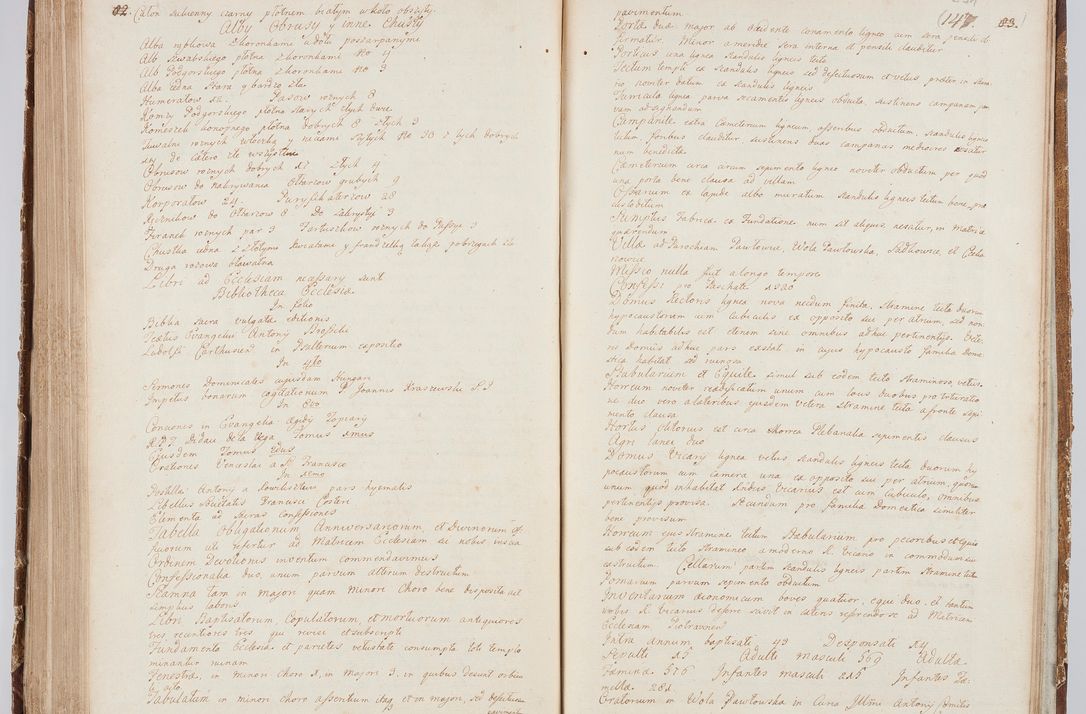 82. Całon sukienny czarny płotnem białym wkoło obszyty.
Alby Obrusy y inne Chusty
Alba myslowa z koronkami udołu poszarpanymi
Alb Szwabskiego płotna z koronkami No 4
Alb Podgorskiego płotna z koronkami No 3
Alba iedna stara y bardzo zła
Humerałow 12. Pasow roznych 8
Komży Podgorskiego płotna starych złych dwie
Komeszek konopnego płotna dobrych 8 złych 3
roznych włoczką y niciami szytych No 30 z tych dobrych
12 de cætero złe wszystkie
Obrusow roznych dobrych 17 złych 4
Obrusow do nakrywania Ołtarzow grubych 9
Korporałow 24. Puryfikaterzow 28
Ręcznikow do Ołtarzow 8 Do Zakrystyi 3
Firanek roznych par 3 Fartuszkow roznych do Passyi 3
Chustka iedna z złotymi kwiatami y frandzelką także po brzegach zła
Druga rożowa
Libri ad Ecclesiam necessary sunt
Bibliotheca Ecclesiæ
In folio
Biblia sacra vulgatæ editionis
Textus Evangelii Antony
Ludolfi Carthusien in Psalterium expositio
In 4to
Sermones Dominicales cujusdam Hungari
Impetus bonarum cogitationum P Joannis Kraszewski S.J
In 8vo
Conciones in Evangelia Ægidy Topiary
R.P.D. Didaci de la Vega Tomus 1mus
Ejusdem Tomus 2dus
Orationes Venceslai a S. Francisco
In 12mo
Postilla Antony a pars hyemalis
Libellus Societatis Francisci Costeri
Elementa ad sacras confessiones
Tabella Obligationum Anniversariorum, et Divinorum Of=
ficiorum uti refertur ad Matricem Ecclesiam su nobis inscia
Ordinem Devotionis inventum commendavimus
Confessionalia duo, unum parvum alterum destructum
Scamna tam in majori quam minori Choro bene disposita ad
simplus laboris
Libri Baptisatorum, Copulatorum, et mortuorum antiquiores
tres recentiores tres qui revisi et subscripti
Fundamenta Ecclesiæ et parietes vetustate consumpta toti templo
minantur ruinam
Fenestræ, in minori Choro 1, in majori 3. in quibus desunt orbes
Tabulatum in minori choro assentium itaq et in majori, sed defectuosum
pavimentum.
(147. 83.
Portæ duæ major ab occidente ornamento ligneo cum sera pensili et
firmatur. Minor a meridie sera interna et pensili clauditur
Porticus una lignea scandulis ligneis tecta
Tectum templi ex scandulis ligneis sed defectuosum et vetus præter in
noviter datum ex scandulis ligneis
Turricula lignea parva secamentis ligneis obducta, sustinens campanam par
vam ad signandum
Campanile extra Cæmeterium ligneum, asseribus obductum, scandulis ligneis
tectum foribus clauditur, sustinens duas campanas mediocres
num benedictæ
Cæmeterium circa circum sepimento ligneo noviter obductum per quod
una porta bene clausa ad villam
Ossarium ex lapide albo muratum scandulis ligneis tectum bene
custoditum
Sumptus Fabricæ ex Fundatione num sit aliquis, nescitur, in Matrice
quærendum
Villæ ad Parochiam Pawłowice, Wola Pawłowska, Sadkowice, et Cieka
nowice
Missio nulla fuit a longo tempore
Confessi pro Paschate 1280
Domus Rectoris lignea nova necdum finita, stramine tecta duorum
hypocaustorum cum cubiculis ex opposito sui per atrium, sed non
dum habitabilis est etenim sine omnibus adhuc pertinentys. Vete
ris Domus adhuc pars exstat in cujus hypocausto familia Dome
stica habitat sed ruinosa
Stabularium et Equile simul sub eodem tecto stramineo, vetus.
Horreum noviter reædificatum unum cum locis duobus pro trituratio
ne duo vero a lateribus ejusdem vetera stramine tecta a fronte sepi
mento clausa
Hortus Olitorius est circa Horrea Plebanalia sepimentis clausus
Agri lanei duo
Domus Vicary lignea vetus scandulis ligneis tecta duorum hy
pocaustorum cum camera una ex opposito sui per atrium, quorum
unum quod inhabitat Rndus Vicarius est cum cubiculo, omnibus
pertinentys provisa. Secundum pro familia Domestica similiter
bene provisum
Horreum ejus stramine tectum Stabularium pro pecoribus et equis
sub eodem tecto stramineo a moderno R. Vicario in commodum sui
exstructum. Cellarium partim scandulis ligneis partim stramine tecta
Pomarium parvum sepimento obductum
Inventarium œconomicum boves quatuor, equi duo, et tantum
verbis R. Vicarius deesse sciscit in cætens referendo se ad Matricem
Ecclesiam Piotravinen
Intra annum baptisati 43 Desponsati 14
Sepulti 15 Adulti masculi 569 Adultæ
Fæminæ 576 Infantes masculi 215 Infantes Fæ
mellæ 261
Oratorium in Wola Pawłowska in Curia Illmi Antony Comitis